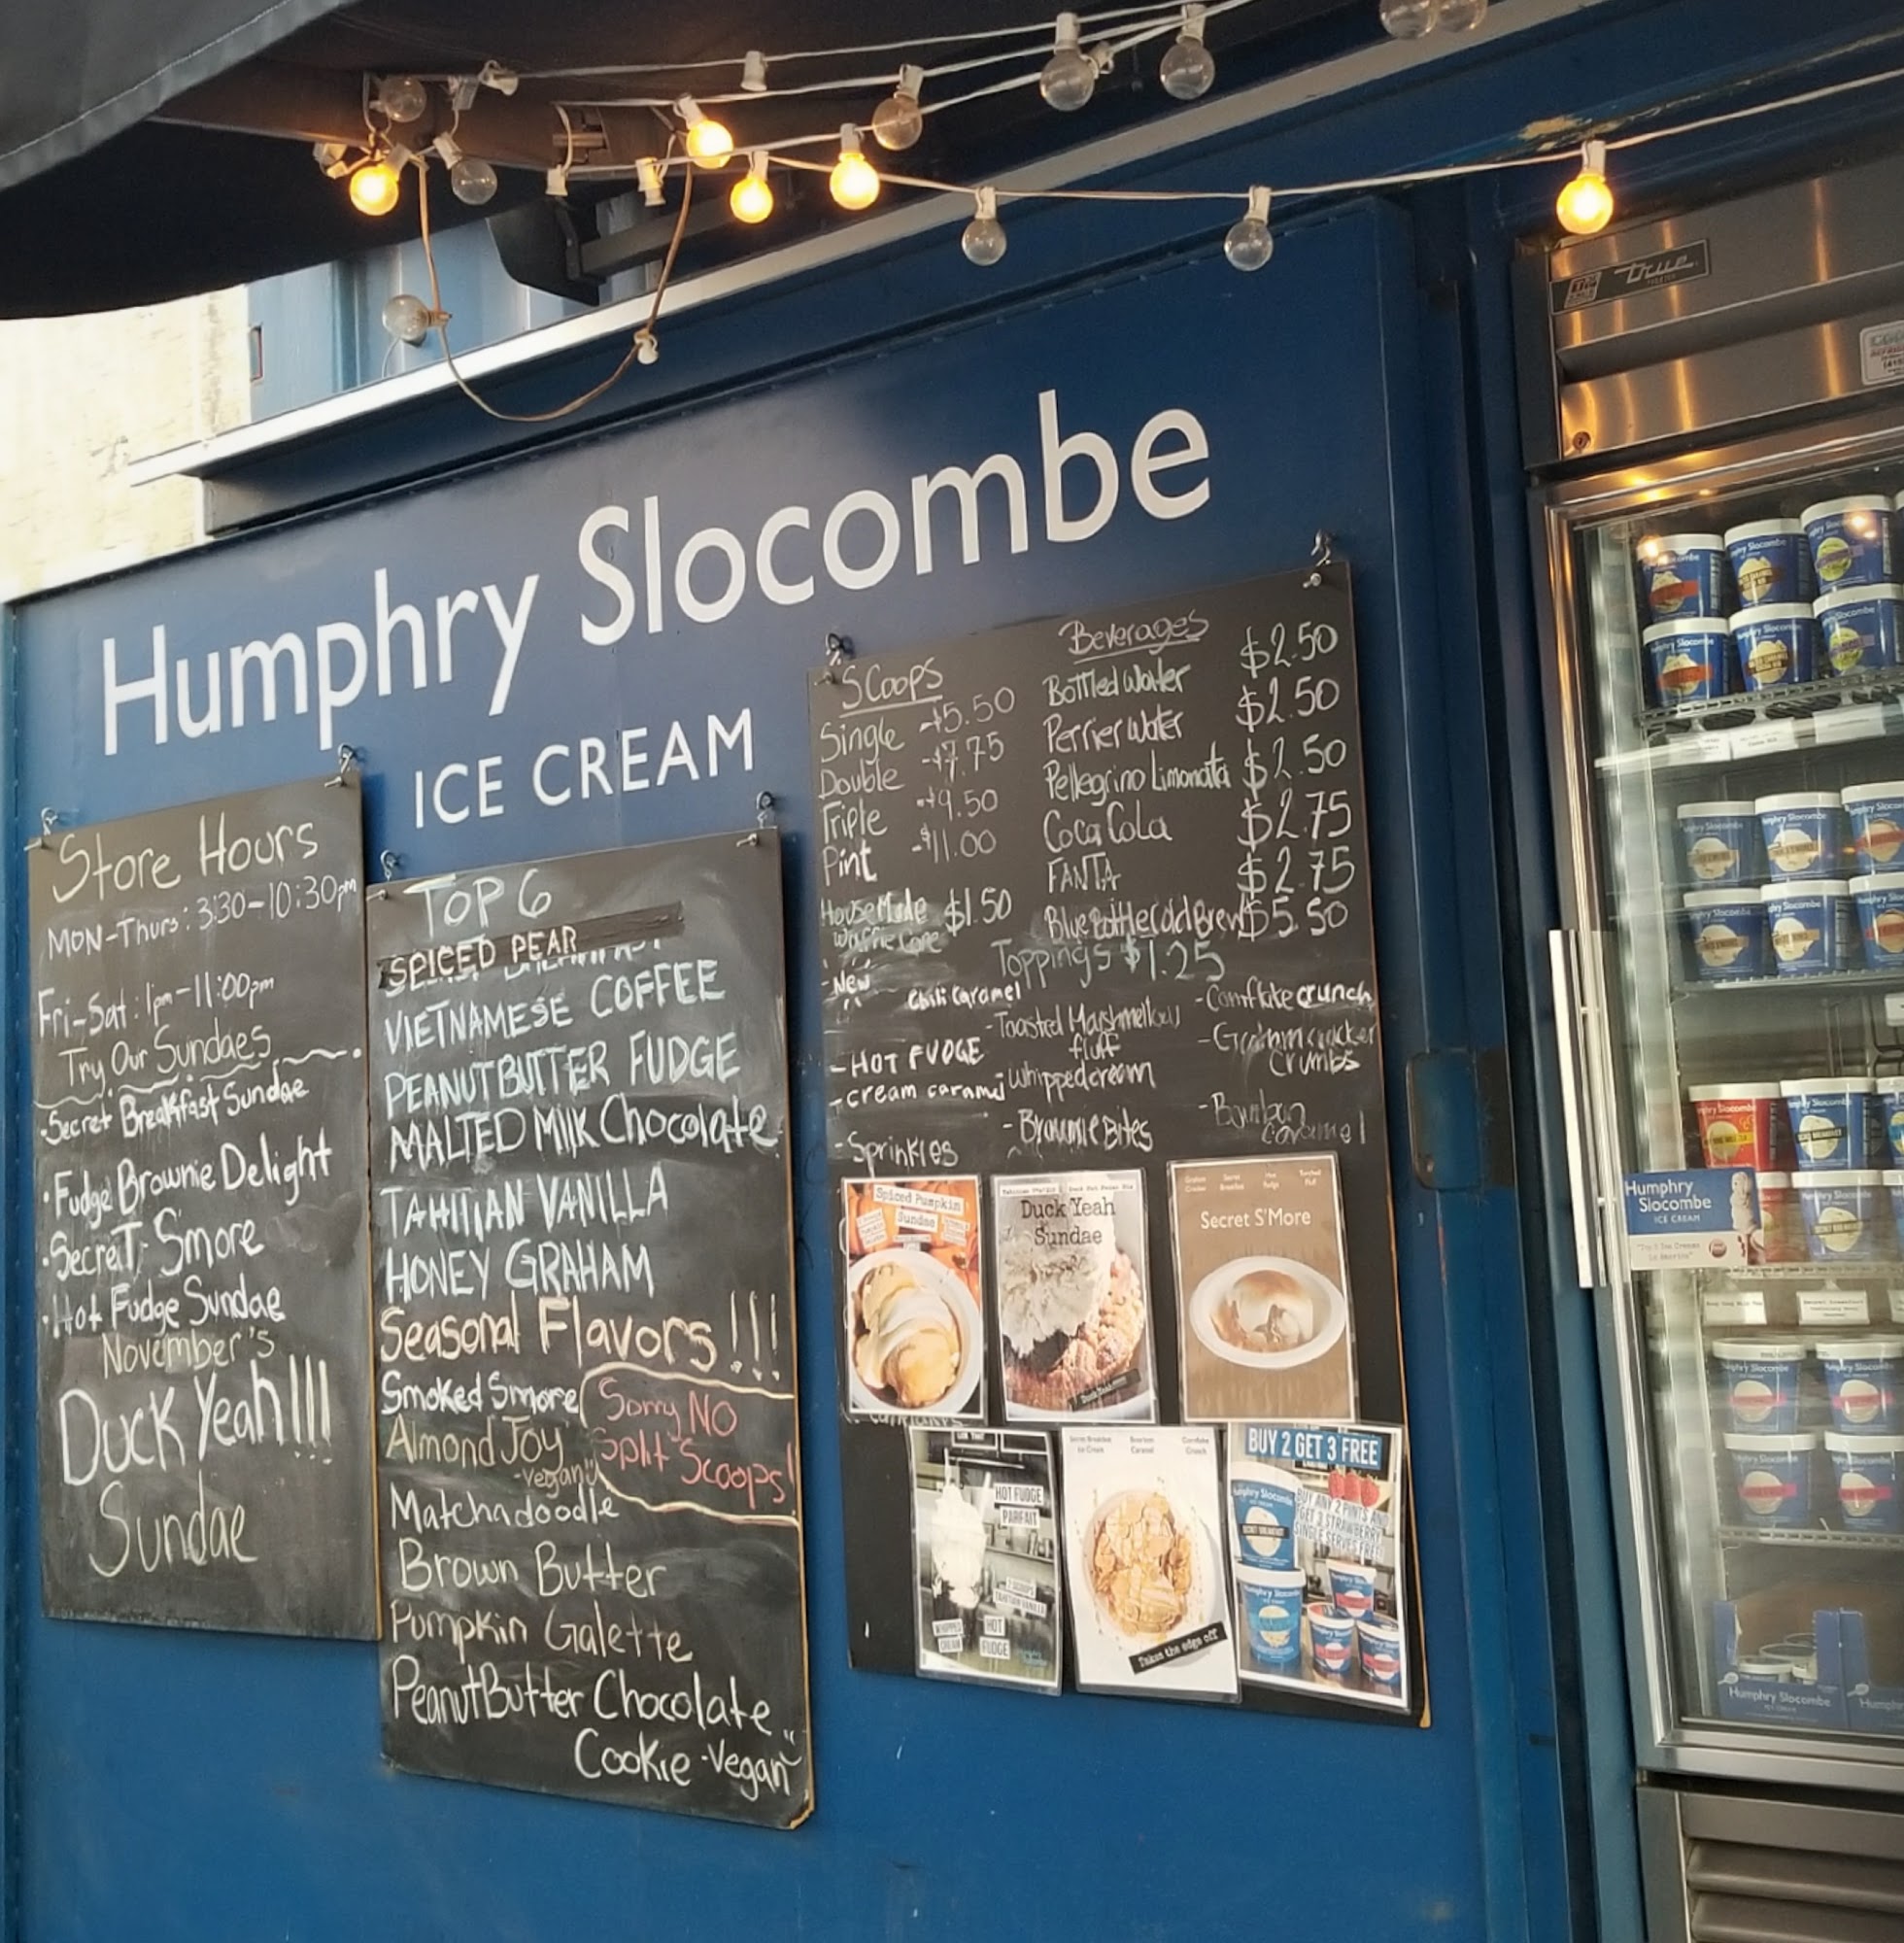 true
Humphry Slocombe
ICE CREAM
Store Hours
MON-Thurs: 3:30-10:30pm
Fri-Sat: 1pm-11:00pm
Try Our Sundaes
·Secret Breakfast Sundae
·Fudge Brownie Delight
·SecreT S'more
·Hot Fudge Sundae
November's
Duck Yeah!!!
Sundae
TOP 6
SPICED PEAR
VIETNAMESE COFFEE
PEANUTBUTTER FUDGE
MALTED MilK Chocolate
TAHITIAN VANILLA
HONEY GRAHAM
Seasonal Flavors!!!
Smoked Smore
Almond Joy
-vegan
Sorry NO
Split Scoops!
Matchadoodle
Brown Butter
Pumpkin Galette
PeanutButter Chocolate
Cookie -Vegan
Scoops
Single -$5.50
Double -$7.75
Triple -$9.50
Pint -$11.00
HouseMade $1.50
Waffle Cone
Beverages
Bottled Water $2.50
Perrier Water $2.50
Pellegrino Limonata $2.50
Coca Cola $2.75
FANTA $2.75
Blue Bottle Cold Brew $5.50
Toppings $1.25
-New
Chili Caramel
-HOT FUDGE
-cream caramel
-Sprinkles
-Toasted Marshmellow
fluff
-whipped cream
-Brownie Bites
-Cornflake crunch
-Graham cracker
Crumbs
-Bourbon
Caramel
Spiced Pumpkin
Sundae
Duck Yeah
Sundae
Secret S'More
HOT FUDGE
PARFAIT
2 SCOOPS
TAHITIAN VANILLA
WHIPPED
CREAM
HOT
FUDGE
Secret Breakfast
Ice Cream
Bourbon
Caramel
Cornflake
Crunch
Takes the edge off
BUY 2 GET 3 FREE
BUY ANY 2 PINTS AND
GET 3 STRAWBERRY
SINGLE SERVES FREE!
Humphry
Slocombe
ICE CREAM
Humphry Slocombe